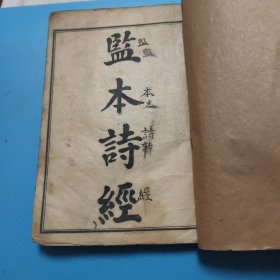 監本詩經
監監
本本
詩詩
經